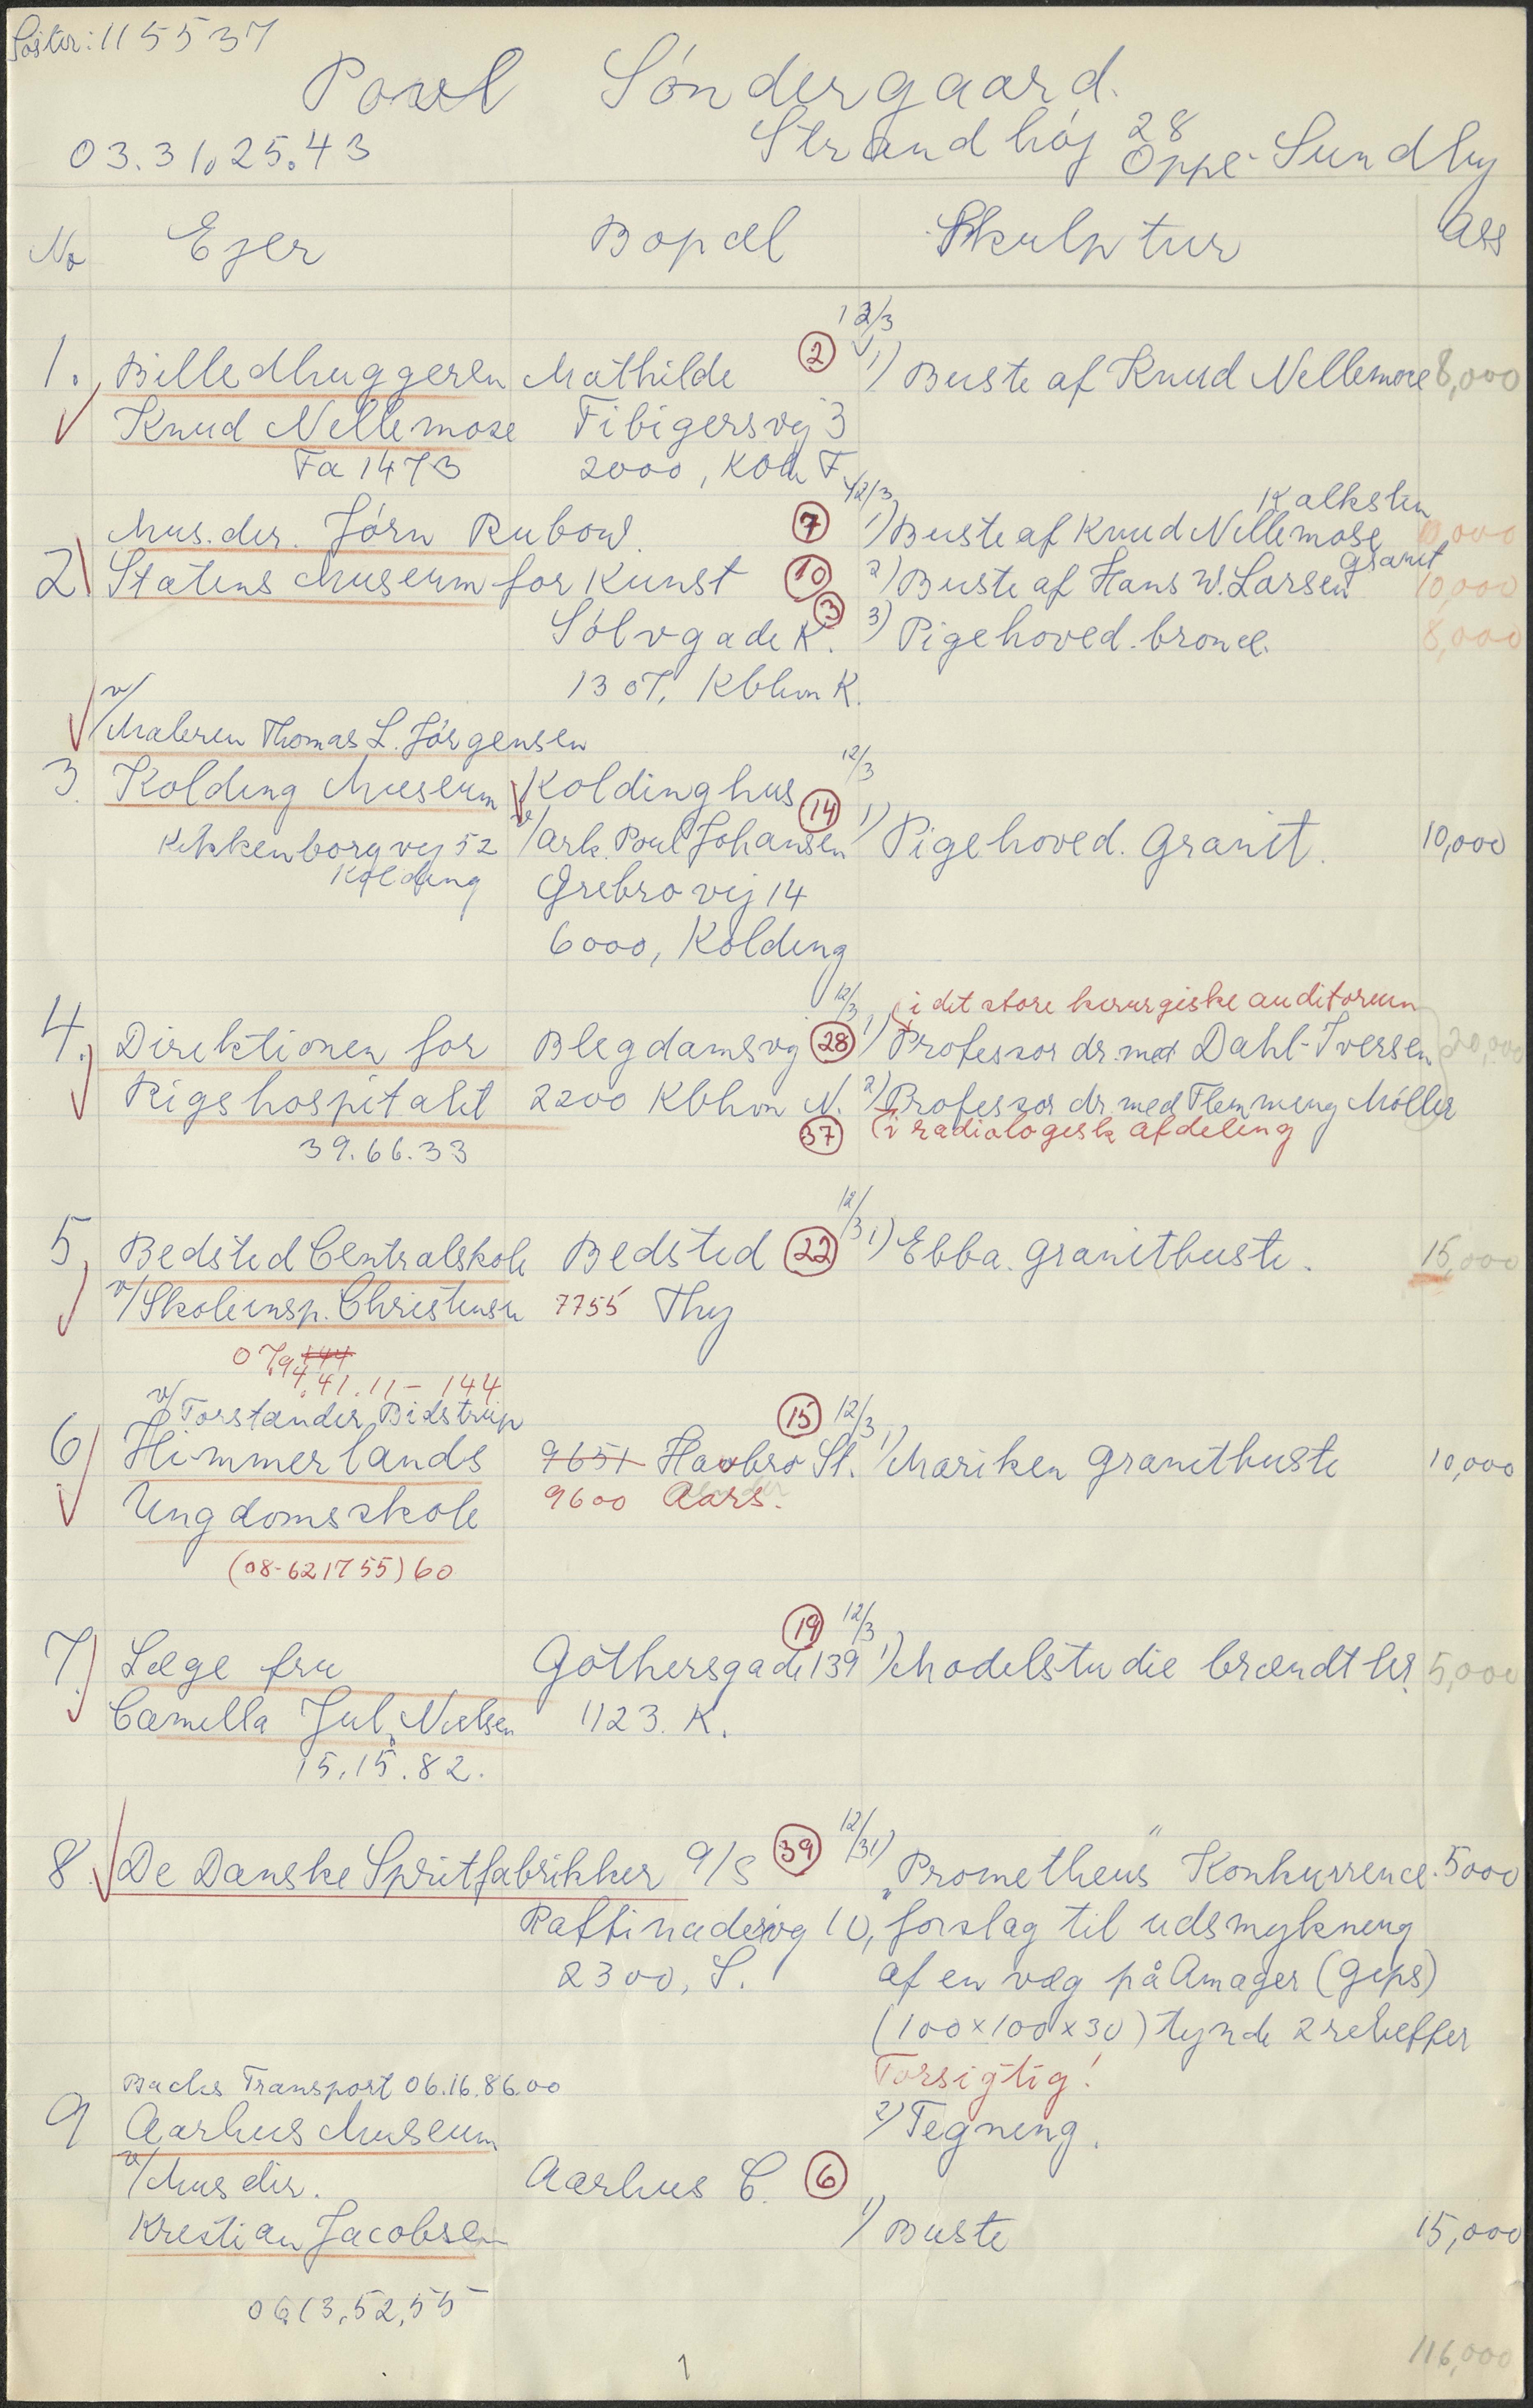 Søster: 115537
Poul Søndergaard.
03.31.25.43
Strandhøj 28
Oppe-Sundby
No Ejer Bopæl Skulptur Ass
12/3
1. Billedhuggeren Mathilde 2 1) Buste af Knud Nellemose 8,000
Knud Nellemose Fibigersvej 3
Fa 1473 2000, Kbh F.
12/3
Kalksten
Mus. dir. Jörn Rubow. 7 1) Buste af Knud Nellemose 10,000
granit
2. Statens Museum for Kunst 10 2) Buste af Hans W. Larsen 10,000
Sölvgade K. 3 3) Pigehoved. bronce. 8,000
1307, Kbhvn K.
v/Maleren Thomas L. Jörgensen
12/3
3. Kolding Museum Koldinghus 14
Rekkenborgvej 52 v/ark. Poul Johansen 1) Pigehoved. Granit. 10,000
Kolding Grebrovej 14
6000, Kolding
12/3 i det store kirurgiske auditorium
4. Direktionen for Blegdamsvej 28 1) Professor dr. med Dahl-Iversen 20,000
Rigshospitalet 2200 Kbhvn N. 2) Professor dr. med Flemming Møller
39.66.33 37 (i radiologisk afdeling
12/3
5. Bedsted Centralskole Bedsted 22 1) Ebba. granitbuste. 15,000
v/Skoleinsp. Christensen 7755 Thy
07,94 144
.41.11 - 144
v/Forstander Bidstrup 15 12/3
6. Himmerlands 9651 Havbro St. 1) Mariken granitbuste 10,000
Ungdomsskole 9600 Aars.
(08-621755) 60
19 12/3
7. Læge fru Göthersgade 139 1) Modelstudie brændt ler. 5,000
Camilla Jul. Nielsen 1123. K.
15.15.82.
12/3
8. De Danske Spritfabrikker A/S 39 1) "Prometheus" Konkurrence. 5000
Raffinaderivej 10, forslag til udsmykning
2300, S. af en væg på Amager (gips)
(100x100x30) tynde 2 relieffer
Forsigtig!
Bachs Transport 06.16.86.00
9 Aarhus Museum 2) Tegning.
v/Mus dir. Aarhus C. 6
Kristian Jacobsen 1) Buste 15,000
0613,52,55
116,000
1